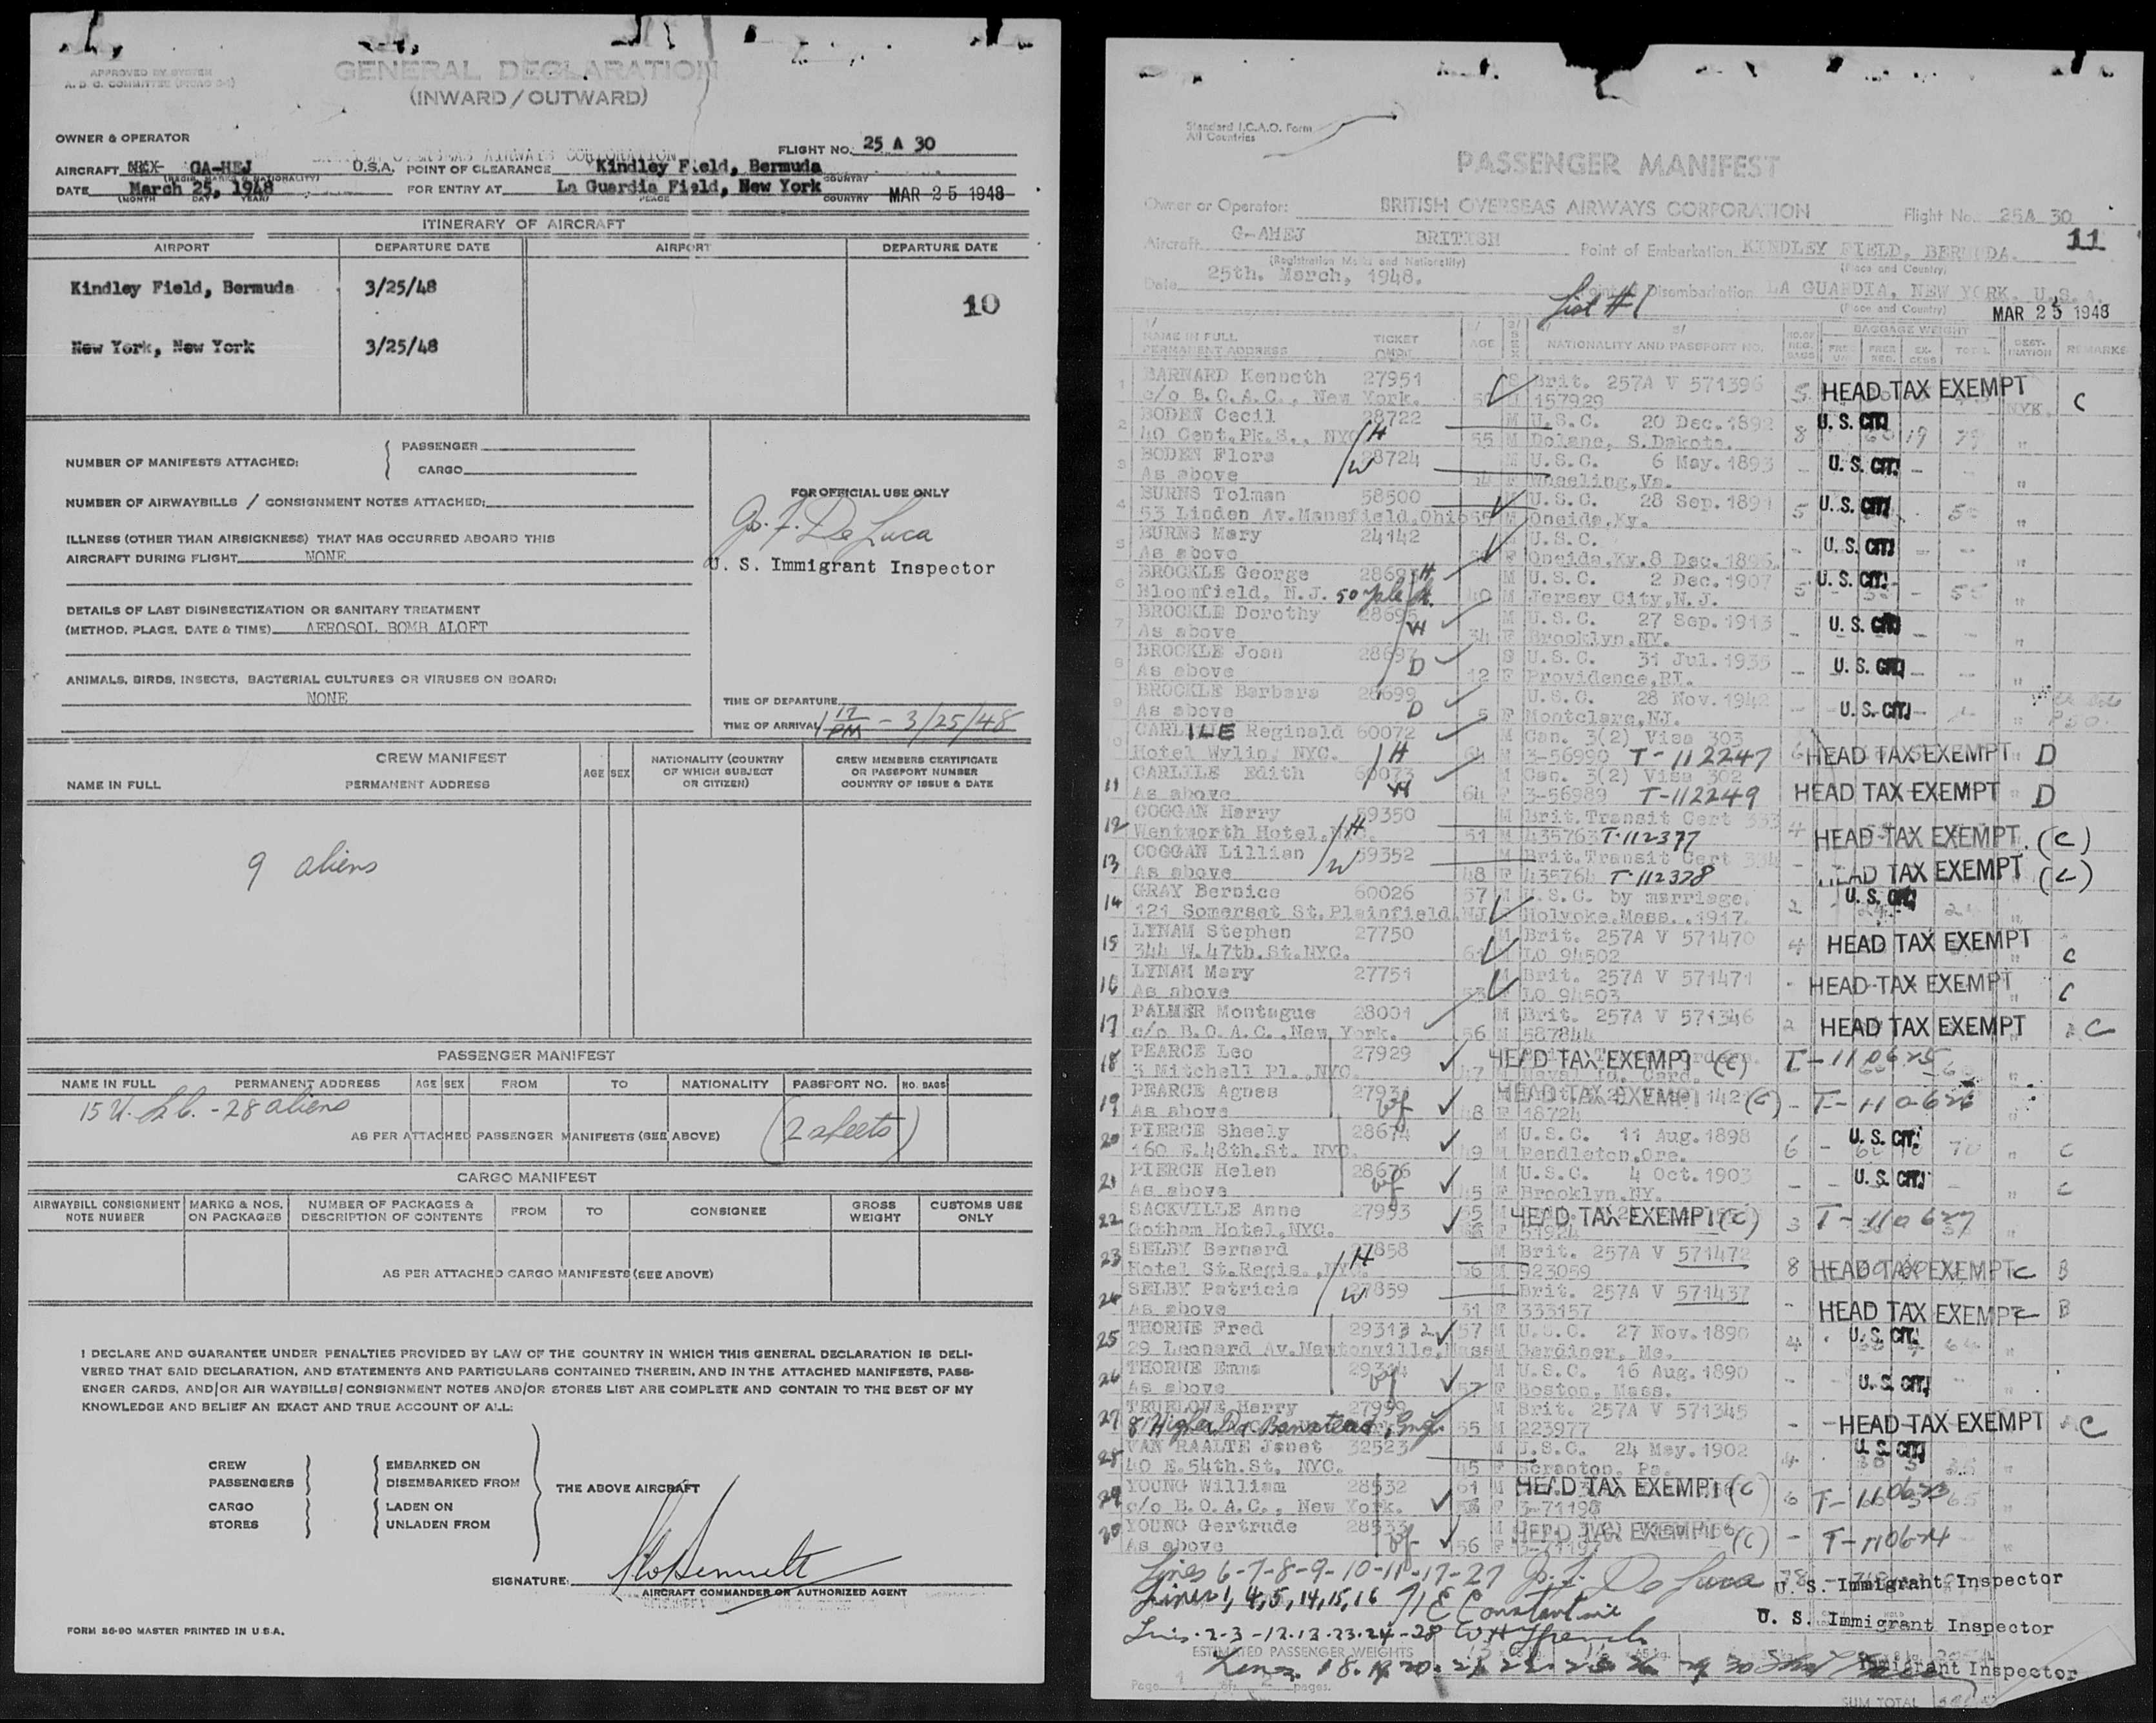 APPROVED BY SYSTEM
GENERAL DECLARATION
(INWARD / OUTWARD)
OWNER & OPERATOR
OVERSEAS AIRWAYS CORPORATION
FLIGHT NO. 25 A 30
AIRCRAFT GA-HEJ U.S.A. POINT OF CLEARANCE Kindley Field, Bermuda
(REGIS. MARKS & NATIONALITY) COUNTRY
DATE March 25, 1948 FOR ENTRY AT La Guardia Field, New York MAR 25 1948
(MONTH DAY YEAR) PLACE COUNTRY
ITINERARY OF AIRCRAFT
AIRPORT DEPARTURE DATE AIRPORT DEPARTURE DATE
Kindley Field, Bermuda 3/25/48
10
New York, New York 3/25/48
NUMBER OF MANIFESTS ATTACHED: PASSENGER
CARGO
NUMBER OF AIRWAYBILLS / CONSIGNMENT NOTES ATTACHED:
ILLNESS (OTHER THAN AIRSICKNESS) THAT HAS OCCURRED ABOARD THIS
AIRCRAFT DURING FLIGHT NONE
DETAILS OF LAST DISINSECTIZATION OR SANITARY TREATMENT
(METHOD, PLACE, DATE & TIME) AEROSOL BOMB ALOFT
ANIMALS, BIRDS, INSECTS, BACTERIAL CULTURES OR VIRUSES ON BOARD:
NONE
FOR OFFICIAL USE ONLY
Jos. F. De Luca
U. S. Immigrant Inspector
TIME OF DEPARTURE
TIME OF ARRIVAL 1 17 PM - 3/25/48
CREW MANIFEST
NAME IN FULL PERMANENT ADDRESS AGE SEX NATIONALITY (COUNTRY OF WHICH SUBJECT OR CITIZEN) CREW MEMBERS CERTIFICATE OR PASSPORT NUMBER COUNTRY OF ISSUE & DATE
9 aliens
PASSENGER MANIFEST
NAME IN FULL PERMANENT ADDRESS AGE SEX FROM TO NATIONALITY PASSPORT NO. NO. BAGS
15 U. S. C. - 28 aliens
AS PER ATTACHED PASSENGER MANIFESTS (SEE ABOVE) (2 sheets)
CARGO MANIFEST
AIRWAYBILL CONSIGNMENT NOTE NUMBER MARKS & NOS. ON PACKAGES NUMBER OF PACKAGES & DESCRIPTION OF CONTENTS FROM TO CONSIGNEE GROSS WEIGHT CUSTOMS USE ONLY
AS PER ATTACHED CARGO MANIFESTS (SEE ABOVE)
I DECLARE AND GUARANTEE UNDER PENALTIES PROVIDED BY LAW OF THE COUNTRY IN WHICH THIS GENERAL DECLARATION IS DELI-
VERED THAT SAID DECLARATION, AND STATEMENTS AND PARTICULARS CONTAINED THEREIN, AND IN THE ATTACHED MANIFESTS, PASS-
ENGER CARDS, AND/OR AIR WAYBILLS/CONSIGNMENT NOTES AND/OR STORES LIST ARE COMPLETE AND CONTAIN TO THE BEST OF MY
KNOWLEDGE AND BELIEF AN EXACT AND TRUE ACCOUNT OF ALL:
CREW EMBARKED ON
PASSENGERS DISEMBARKED FROM THE ABOVE AIRCRAFT
CARGO LADEN ON
STORES UNLADEN FROM
SIGNATURE:
AIRCRAFT COMMANDER OR AUTHORIZED AGENT
FORM 86-90 MASTER PRINTED IN U.S.A.
Standard I.C.A.O. Form
All Countries
PASSENGER MANIFEST
Owner or Operator: BRITISH OVERSEAS AIRWAYS CORPORATION Flight No. 25A 30
11
Aircraft G-AHEJ BRITISH Point of Embarkation KINDLEY FIELD, BERMUDA.
(Registration Marks and Nationality) (Place and Country)
Date 25th. March, 1948. List #1 Point of Disembarkation LA GUARDIA, NEW YORK. U.S.A.
(Place and Country) MAR 25 1948
NAME IN FULL TICKET AGE SEX NATIONALITY AND PASSPORT NO. NO. OF REG. BAGS BAGGAGE WEIGHT DEST-INATION REMARKS
PERMANENT ADDRESS TOTAL
1 BARNARD Kenneth 27951 S Brit. 257A V 571396 5 HEAD TAX EXEMPT C
c/o B.O.A.C., New York. 157929 NYK.
2 BODEN Cecil 28722 M U.S.C. 20 Dec. 1892 8 U. S. CIT. 19 79
40 Cent.Pk.S., NYC H 55 M Dolane, S.Dakota.
3 BODEN Flora 28724 M U.S.C. 6 May. 1893 U. S. CIT.
As above W F Wheeling,Va.
4 BURNS Tolman 58500 U.S.C. 28 Sep. 1891 5 U. S. CIT.
53 Linden Av.Mansfield.Ohio M Oneida,Ky.
5 BURNS Mary 24142 U.S.C. U. S. CIT.
As above F Oneida.Ky.8 Dec.
6 BROCKLE George H M U.S.C. 2 Dec. 1907 5 U. S. CIT.
Bloomfield, N.J. 40 M Jersey City,N.J. 55
7 BROCKLE Dorothy W M U.S.C. 27 Sep. 1913 U. S. CIT.
As above 34 F Brooklyn.NY.
8 BROCKLE Joan 28697 D S U.S.C. 31 Jul. 1935 U. S. CIT.
As above 12 F Providence,RI.
9 BROCKLE Barbara 28699 D U.S.C. 28 Nov. 1942 U. S. CIT.
As above 5 F Montclare,NJ.
CARLILE Reginald 60072 M Can. 3(2) Visa 303 6 HEAD TAX EXEMPT D
Hotel Wylin, NYC. H 64 M 3-56990 T-112247
11 CARLILE Edith 60073 M Can. 3(2) Visa 302 HEAD TAX EXEMPT D
As above W 64 F 3-56989 T-112249
12 COGGAN Harry 59350 M Brit.Transit Cert 333 4 HEAD TAX EXEMPT (C)
Wentworth Hotel,NYC. H 51 M 435763 T-112377
13 COGGAN Lillian 59352 M Brit.Transit Cert 334 HEAD TAX EXEMPT (C)
As above W 48 F 435764 T-112378
14 GRAY Bernice 60026 57 U.S.C. by marriage 2 U. S. CIT.
121 Somerset St.Plainfield NJ Holyoke.Mass. .1917.
15 LYNAM Stephen 27750 M Brit. 257A V 571470 4 HEAD TAX EXEMPT C
344 W.47th.St.NYC. LO 94502
16 LYNAM Mary 27751 M Brit. 257A V 571471 HEAD TAX EXEMPT C
As above LO 94503
17 PALMER Montague 28001 M Brit. 257A V 571346 2 HEAD TAX EXEMPT C
c/o B.O.A.C..New York. 56 M 587844
18 PEARCE Leo 27929 HEAD TAX EXEMPT (C) T-110625
3 Mitchell Pl.,NYC. 47
19 PEARCE Agnes 27931 wf HEAD TAX EXEMPT (C) T-110626
As above 48 F 18724
20 PIERCE Sheely 28674 M U.S.C. 11 Aug. 1898 6 U. S. CIT. 70 C
160 E.48th.St. NYC. 49 M Pendleton.Ore.
21 PIERCE Helen 28676 wf M U.S.C. 4 Oct. 1903 U. S. CIT. C
As above 45 F Brooklyn.NY.
22 SACKVILLE Anne 27993 HEAD TAX EXEMPT (C) 3 T-110627
Gotham Hotel,NYC. F 51924
23 SELBY Bernard 27858 M Brit. 257A V 571472 8 HEAD TAX EXEMPT C B
Hotel St.Regis.,NYC. H 56 M 923059
24 SELBY Patricia 27859 Brit. 257A V 571437 HEAD TAX EXEMPT C B
As above W 31 F 333157
25 THORNE Fred 29313 57 M U.S.C. 27 Nov. 1890 4 U. S. CIT. 64
29 Leonard Av.Newtonville,Mass M Gardiner, Me.
26 THORNE Emma 29314 wf M U.S.C. 16 Aug. 1890 U. S. CIT.
As above 57 F Boston, Mass.
27 TRUELOVE Harry 27999 M Brit. 257A V 571345 HEAD TAX EXEMPT C
8 Higher Dr. Banstead, Eng. 55 M 223977
28 VAN RAALTE Janet 32523 M U.S.C. 24 May. 1902 4 U. S. CIT.
40 E.54th.St, NYC. 45 F Scranton, Pa.
29 YOUNG William 28532 61 M HEAD TAX EXEMPT (C) 6 T-110623 65
c/o B.O.A.C., New York. 3-71198
30 YOUNG Gertrude 28533 wf HEAD TAX EXEMPT (C) T-110624
As above 56 F
Lines 6-7-8-9-10-11-17-27 J. F. De Luca U. S. Immigrant Inspector
Lines 1, 4, 5, 14, 15, 16 H E Constantine U. S. Immigrant Inspector
Lines 2-3-12-13-23-24-28 W H French
ESTIMATED PASSENGER WEIGHTS
Lines 18. 19 20. 21 22. 25 26 29 30 Immigrant Inspector
Page 1 of 2 pages.
SUM TOTAL